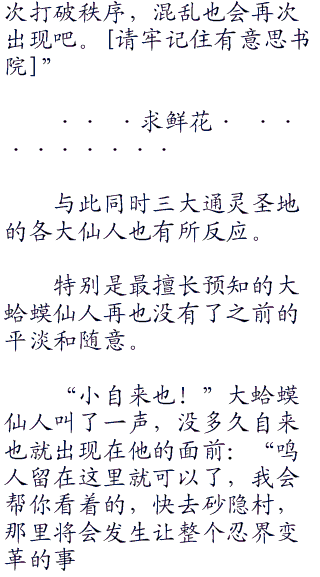 次打破秩序，混乱也会再次
出现吧。[请牢记住有意思书
院]”
· · ·求鲜花· · ·
· · · · · · ·
与此同时三大通灵圣地
的各大仙人也有所反应。
特别是最擅长预知的大
蛤蟆仙人再也没有了之前的
平淡和随意。
“小自来也！”大蛤蟆
仙人叫了一声，没多久自来
也就出现在他的面前：“鸣
人留在这里就可以了，我会
帮你看着的，快去砂隐村，
那里将会发生让整个忍界变
革的事